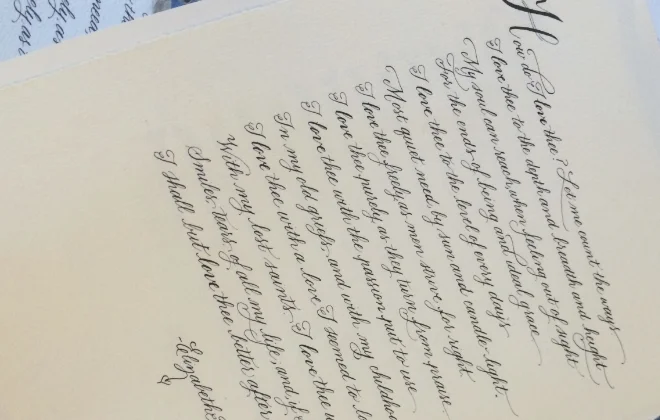 How do I love thee? Let me count the ways
I love thee to the depth and breadth and height
My soul can reach, when feeling out of sight
For the ends of being and ideal grace
I love thee to the level of every day's
Most quiet need by sun and candle-light.
I love thee freely, as men strive for right
I love thee purely, as they turn from praise
I love thee with the passion put to use
In my old griefs, and with my childho
I love thee with a love I seemed to lo
With my lost saints. I love thee w
Smiles, tears, of all my life; and if
I shall but love thee better after
-Elizabeth